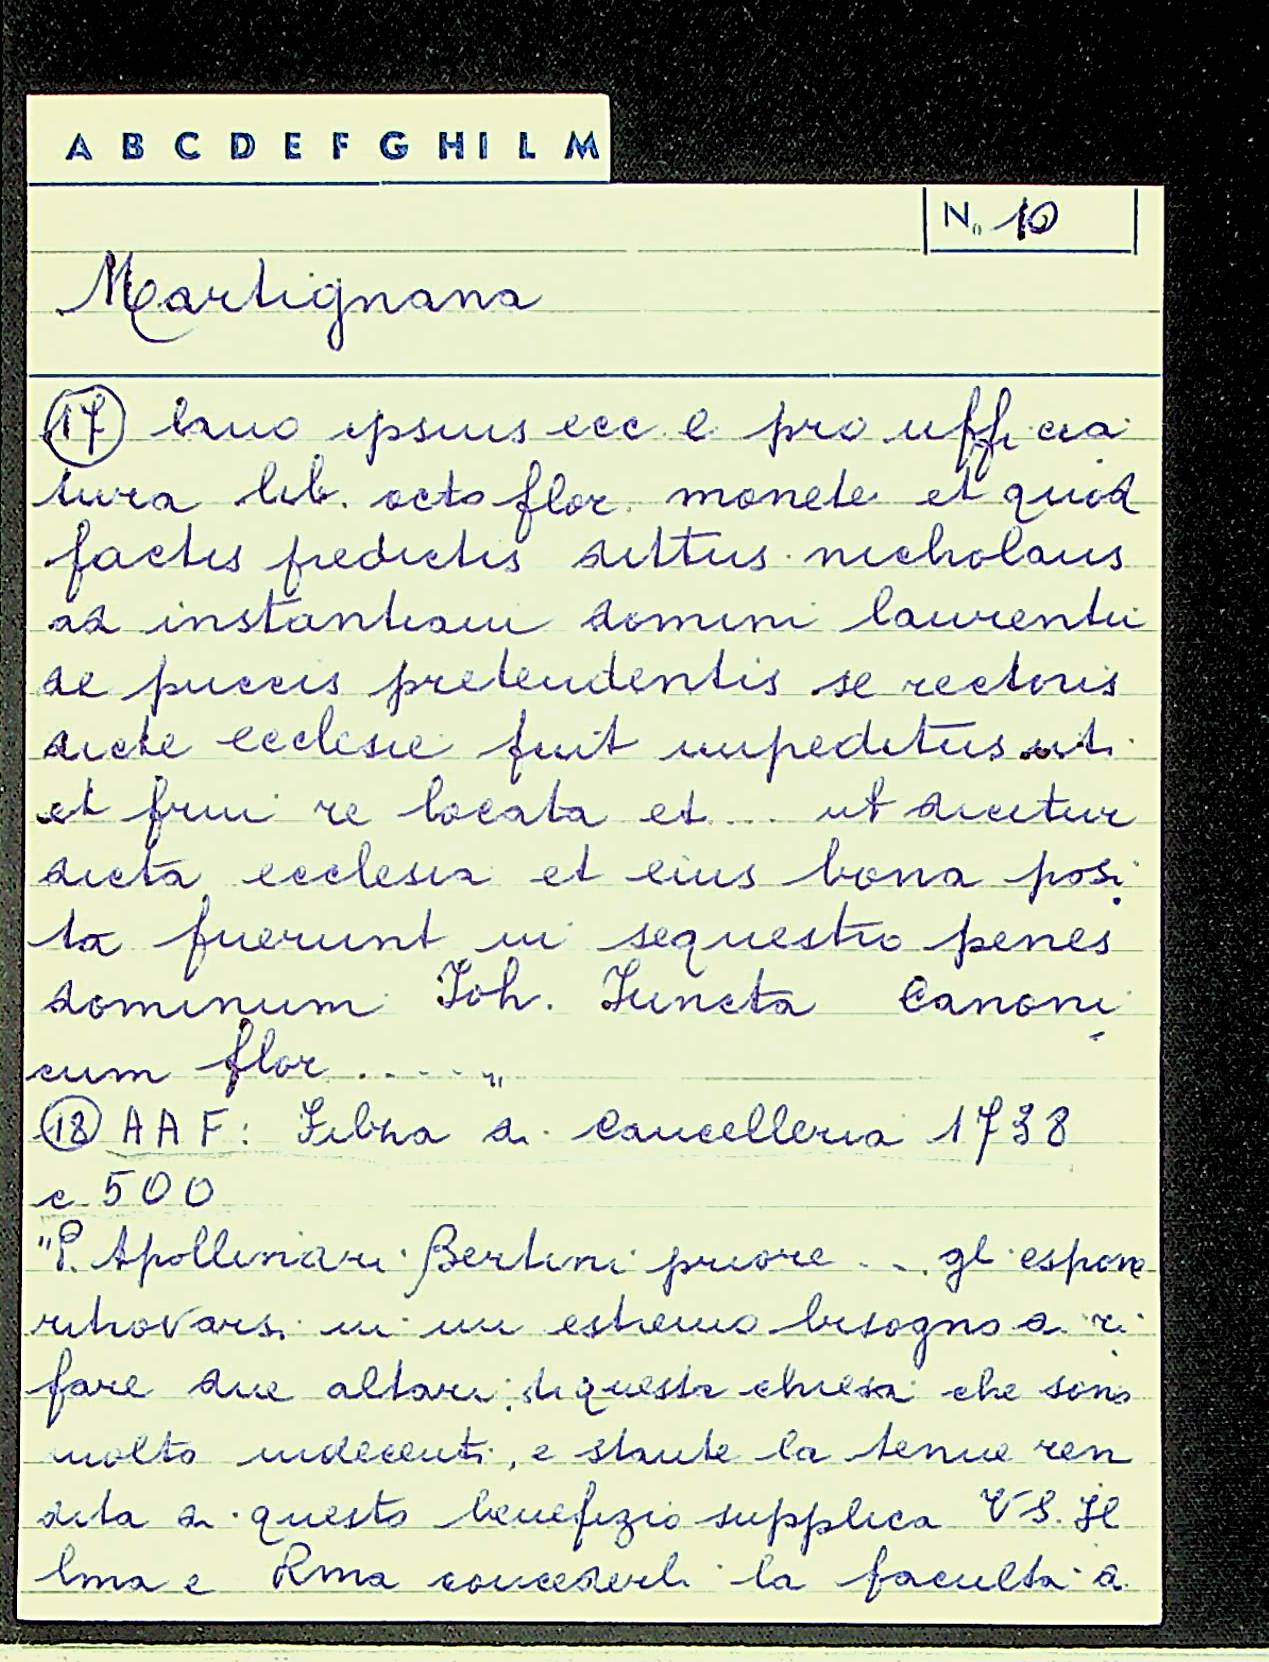 A B C D E F G H I L M
N. 10
Martignana
17 bano ipsius ecc e proufficia
tura lib. octo flor. monete et quod
factis predictis dittus nicholaus
ad instantiam domini laurentii
de puccis pretendentis se rectoris
dicte ecclesie fuit impeditus uti
et frui re locata et ... ut dicitur
dicta ecclesia et eius bona posi
ta fuerunt in sequestro penes
dominum Joh. Juncta Canoni
cum flor ..... "
18 AAF: Filza di Cancelleria 1738
c 500
"P. Apollinari Bertini priore ... gl espone
ritrovarsi in un estremo bisogno di ri
fare due altari di questa chiesa che sono
molto indecenti, e stante la tenue ren
dita di questo benefizio supplica VS. Il
lma e Rma concederli la faculta di